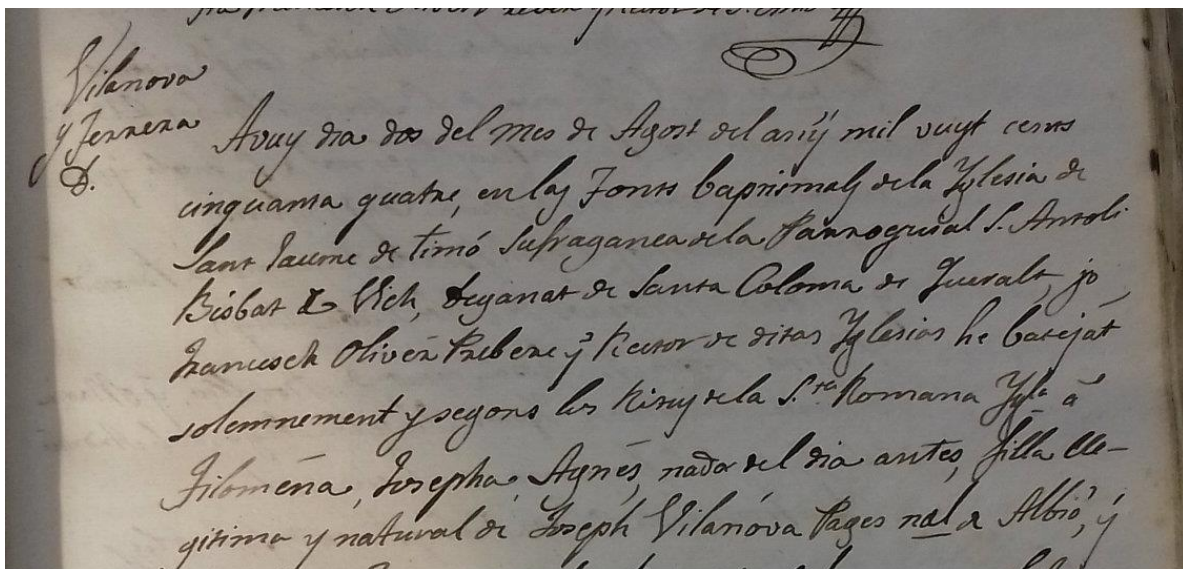 Vilanova
y Ferrera
D.
Avuy dia dos del mes de Agost del añy mil vuyt cents
cinquanta quatre, en las Fonts baptismals dela Yglesia de
Sant Jaume de Timó sufraganea dela Parroquial S. Antoli
Bisbat de Vich, deganat de Santa Coloma de Queralt, jo
Francisch Oliver Prebere y Rector de ditas Yglesias he batejat
solemnement y segons los Ritus dela S.ta Romana Ygla á
Filomena, Josepha, Agnes, nada del dia antes, filla lle-
gitima y natural de Joseph Vilanova Pages nal de Albió, y